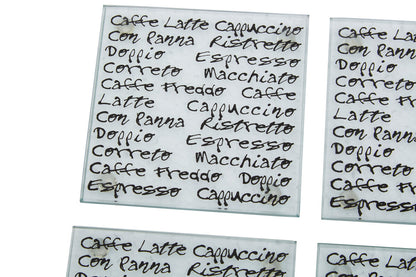 Caffe Latte Cappuccino
Con Panna Ristretto
Doppio Espresso
Correto Macchiato
Caffe Freddo Caffe
Latte Cappuccino
Con Panna Ristretto
Doppio Espresso
Correto Macchiato
Caffe Freddo Doppio
Espresso Cappuccino
Caffe
Con Pan
Doppio
Correto
Caffe F
Latte
Con Pan
Doppio
Correto
Caffe F
Espress
Caffe Latte Cappuccino
Con Panna Ristretto
Doppio Espresso
Caffe L
Con Pan